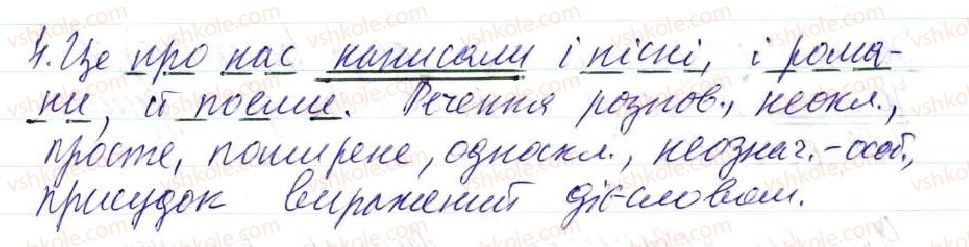 4. Це про нас написали і пісні, і рома-
ни, й поеми. Речення розпов., неокл.,
просте, поширене, односкл., неознач.-особ.,
присудок виражений дієсловом.